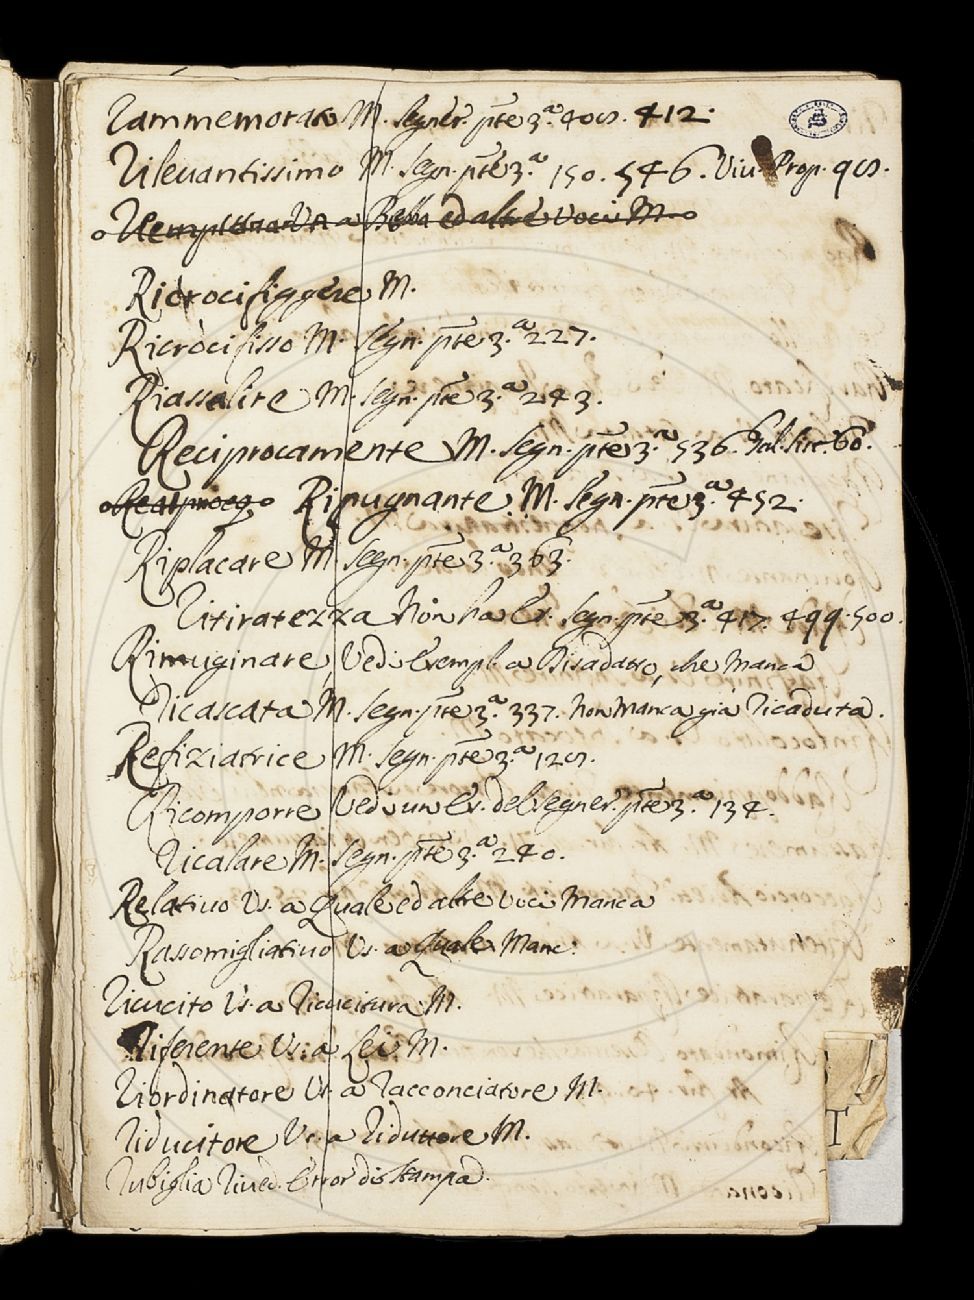 Rammemorato M. Segner. pte 3.a 409. 412.
Rilevantissimo M. Segn. pte 3.a 150. 546. Prop. 99.
ed altre voci M.
Ricrocifiggere M.
Ricrocifisso M. Segn. pte 3.a 227.
Riassalire M. Segn. pte 3.a 243.
Reciprocamente M. Segn. pte 3.a 536. 60.
Ripugnante M. Segn. pte 3.a 452.
Riplacare M. Segn. pte 3.a 363.
Ritiratezza Non ha Es. Segn. pte 3.a 417. 499. 500.
Rimuginare Vedi Esempl. a Disadatto, che Manca
Ricascata M. Segn. pte 3.a 337. Non Manca già Ricaduta.
Refiziatrice M. Segn. pte 3.a 129.
Ricomporre Vedi un Es. del Segner. pte 3.a 134.
Ricalare M. Segn. pte 3.a 240.
Relativo Vs. a Quale ed altre voci Manca
Rassomigliativo Vs. a Quale Manc.
Ricucito Vs. a Ricucitura M.
Riferente Vs. a Lei. M.
Riordinatore Vs. a Racconciatore M.
Riducitore Vs. a Riduttore M.
Rubiglia Rived. Error di Stampa.
T